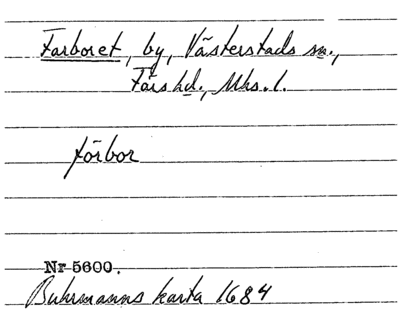 Farboret, by, Västerstads sn.,
Färs hd., Mhs. l.
förbor
Nr 5600.
Buhrmanns karta 1684